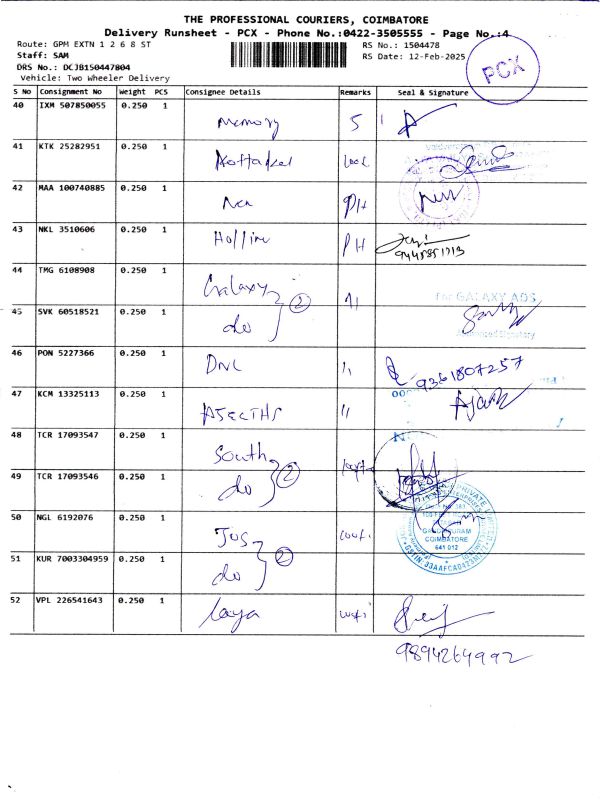 THE PROFESSIONAL COURIERS, COIMBATORE
Delivery Runsheet - PCX - Phone No.:0422-3505555 - Page No.:4
Route: GPM EXTN 1 2 6 8 ST
RS No.: 1504478
Staff: SAM
RS Date: 12-Feb-2025
DRS No.: DCJB150447804
Vehicle: Two Wheeler Delivery
PCX
S No Consignment No Weight PCS Consignee Details Remarks Seal & Signature
40 IXM 507850055 0.250 1 Memory 5
41 KTK 25282951 0.250 1
42 MAA 100740885 0.250 1 PH
43 NKL 3510606 0.250 1 PH
9445851713
44 TMG 6108908 0.250 1 Galaxy 2 11
For GALAXY ADS
45 SVK 60518521 0.250 1 do
Authorised Signatory
46 PON 5227366 0.250 1 DNL 11 9361807257
47 KCM 13325113 0.250 1 11
48 TCR 17093547 0.250 1 South 2
49 TCR 17093546 0.250 1 do
PRIVATE
50 NGL 6192076 0.250 1 Jus 2
COIMBATORE
641 012
51 KUR 7003304959 0.250 1 do
52 VPL 226541643 0.250 1 Laya
9894264992